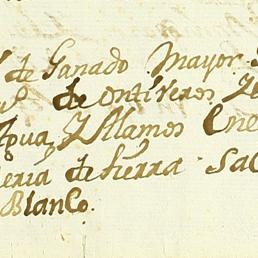 de Ganado Mayor
de ontiveros
Agua, Y Alamos Ene
de tierra Sa
Blanco.